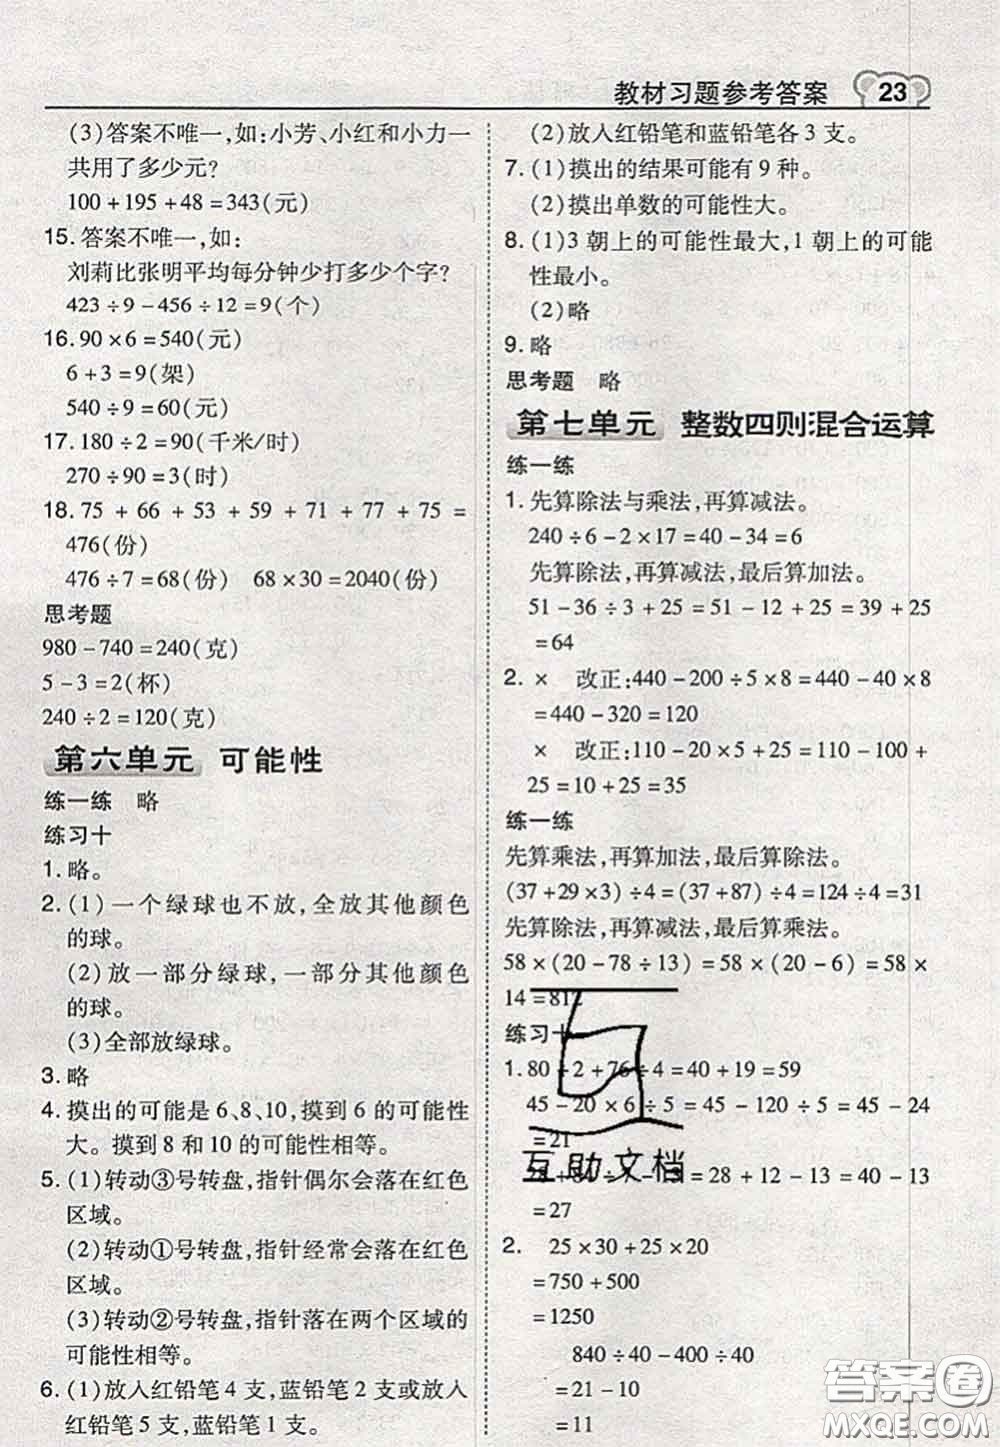 教材习题参考答案 23
(3)答案不唯一,如:小芳、小红和小力一
共用了多少元?
100+195+48=343(元)
15.答案不唯一,如:
刘莉比张明平均每分钟少打多少个字?
423÷9-456÷12=9(个)
16.90×6=540(元)
6+3=9(架)
540÷9=60(元)
17.180÷2=90(千米/时)
270÷90=3(时)
18.75+66+53+59+71+77+75=
476(份)
476÷7=68(份) 68×30=2040(份)
思考题
980-740=240(克)
5-3=2(杯)
240÷2=120(克)
第六单元 可能性
练一练 略
练习十
1.略。
2.(1)一个绿球也不放,全放其他颜色
的球。
(2)放一部分绿球,一部分其他颜色
的球。
(3)全部放绿球。
3.略
4.摸出的可能是6、8、10,摸到6的可能性
大。摸到8和10的可能性相等。
5.(1)转动③号转盘,指针偶尔会落在红色
区域。
(2)转动①号转盘,指针经常会落在红色
区域。
(3)转动②号转盘,指针落在两个区域的
可能性相等。
6.(1)放入红铅笔4支,蓝铅笔2支或放入
红铅笔5支,蓝铅笔1支。
(2)放入红铅笔和蓝铅笔各3支。
7.(1)摸出的结果可能有9种。
(2)摸出单数的可能性大。
8.(1)3朝上的可能性最大,1朝上的可能
性最小。
(2)略
9.略
思考题 略
第七单元 整数四则混合运算
练一练
1.先算除法与乘法,再算减法。
240÷6-2×17=40-34=6
先算除法,再算减法,最后算加法。
51-36÷3+25=51-12+25=39+25
=64
2. × 改正:440-200÷5×8=440-40×8
=440-320=120
× 改正:110-20×5+25=110-100+
25=10+25=35
练一练
先算乘法,再算加法,最后算除法。
(37+29×3)÷4=(37+87)÷4=124÷4=31
先算除法,再算减法,最后算乘法。
58×(20-78÷13)=58×(20-6)=58×
14=812
练习十
1.80÷2+76÷4=40+19=59
45-20×6÷5=45-120÷5=45-24
=21
28+84÷7-13=28+12-13=40-13
=27
2. 25×30+25×20
=750+500
=1250
840÷40-400÷40
=21-10
=11
互助文档
答案圈
MXQE.COM